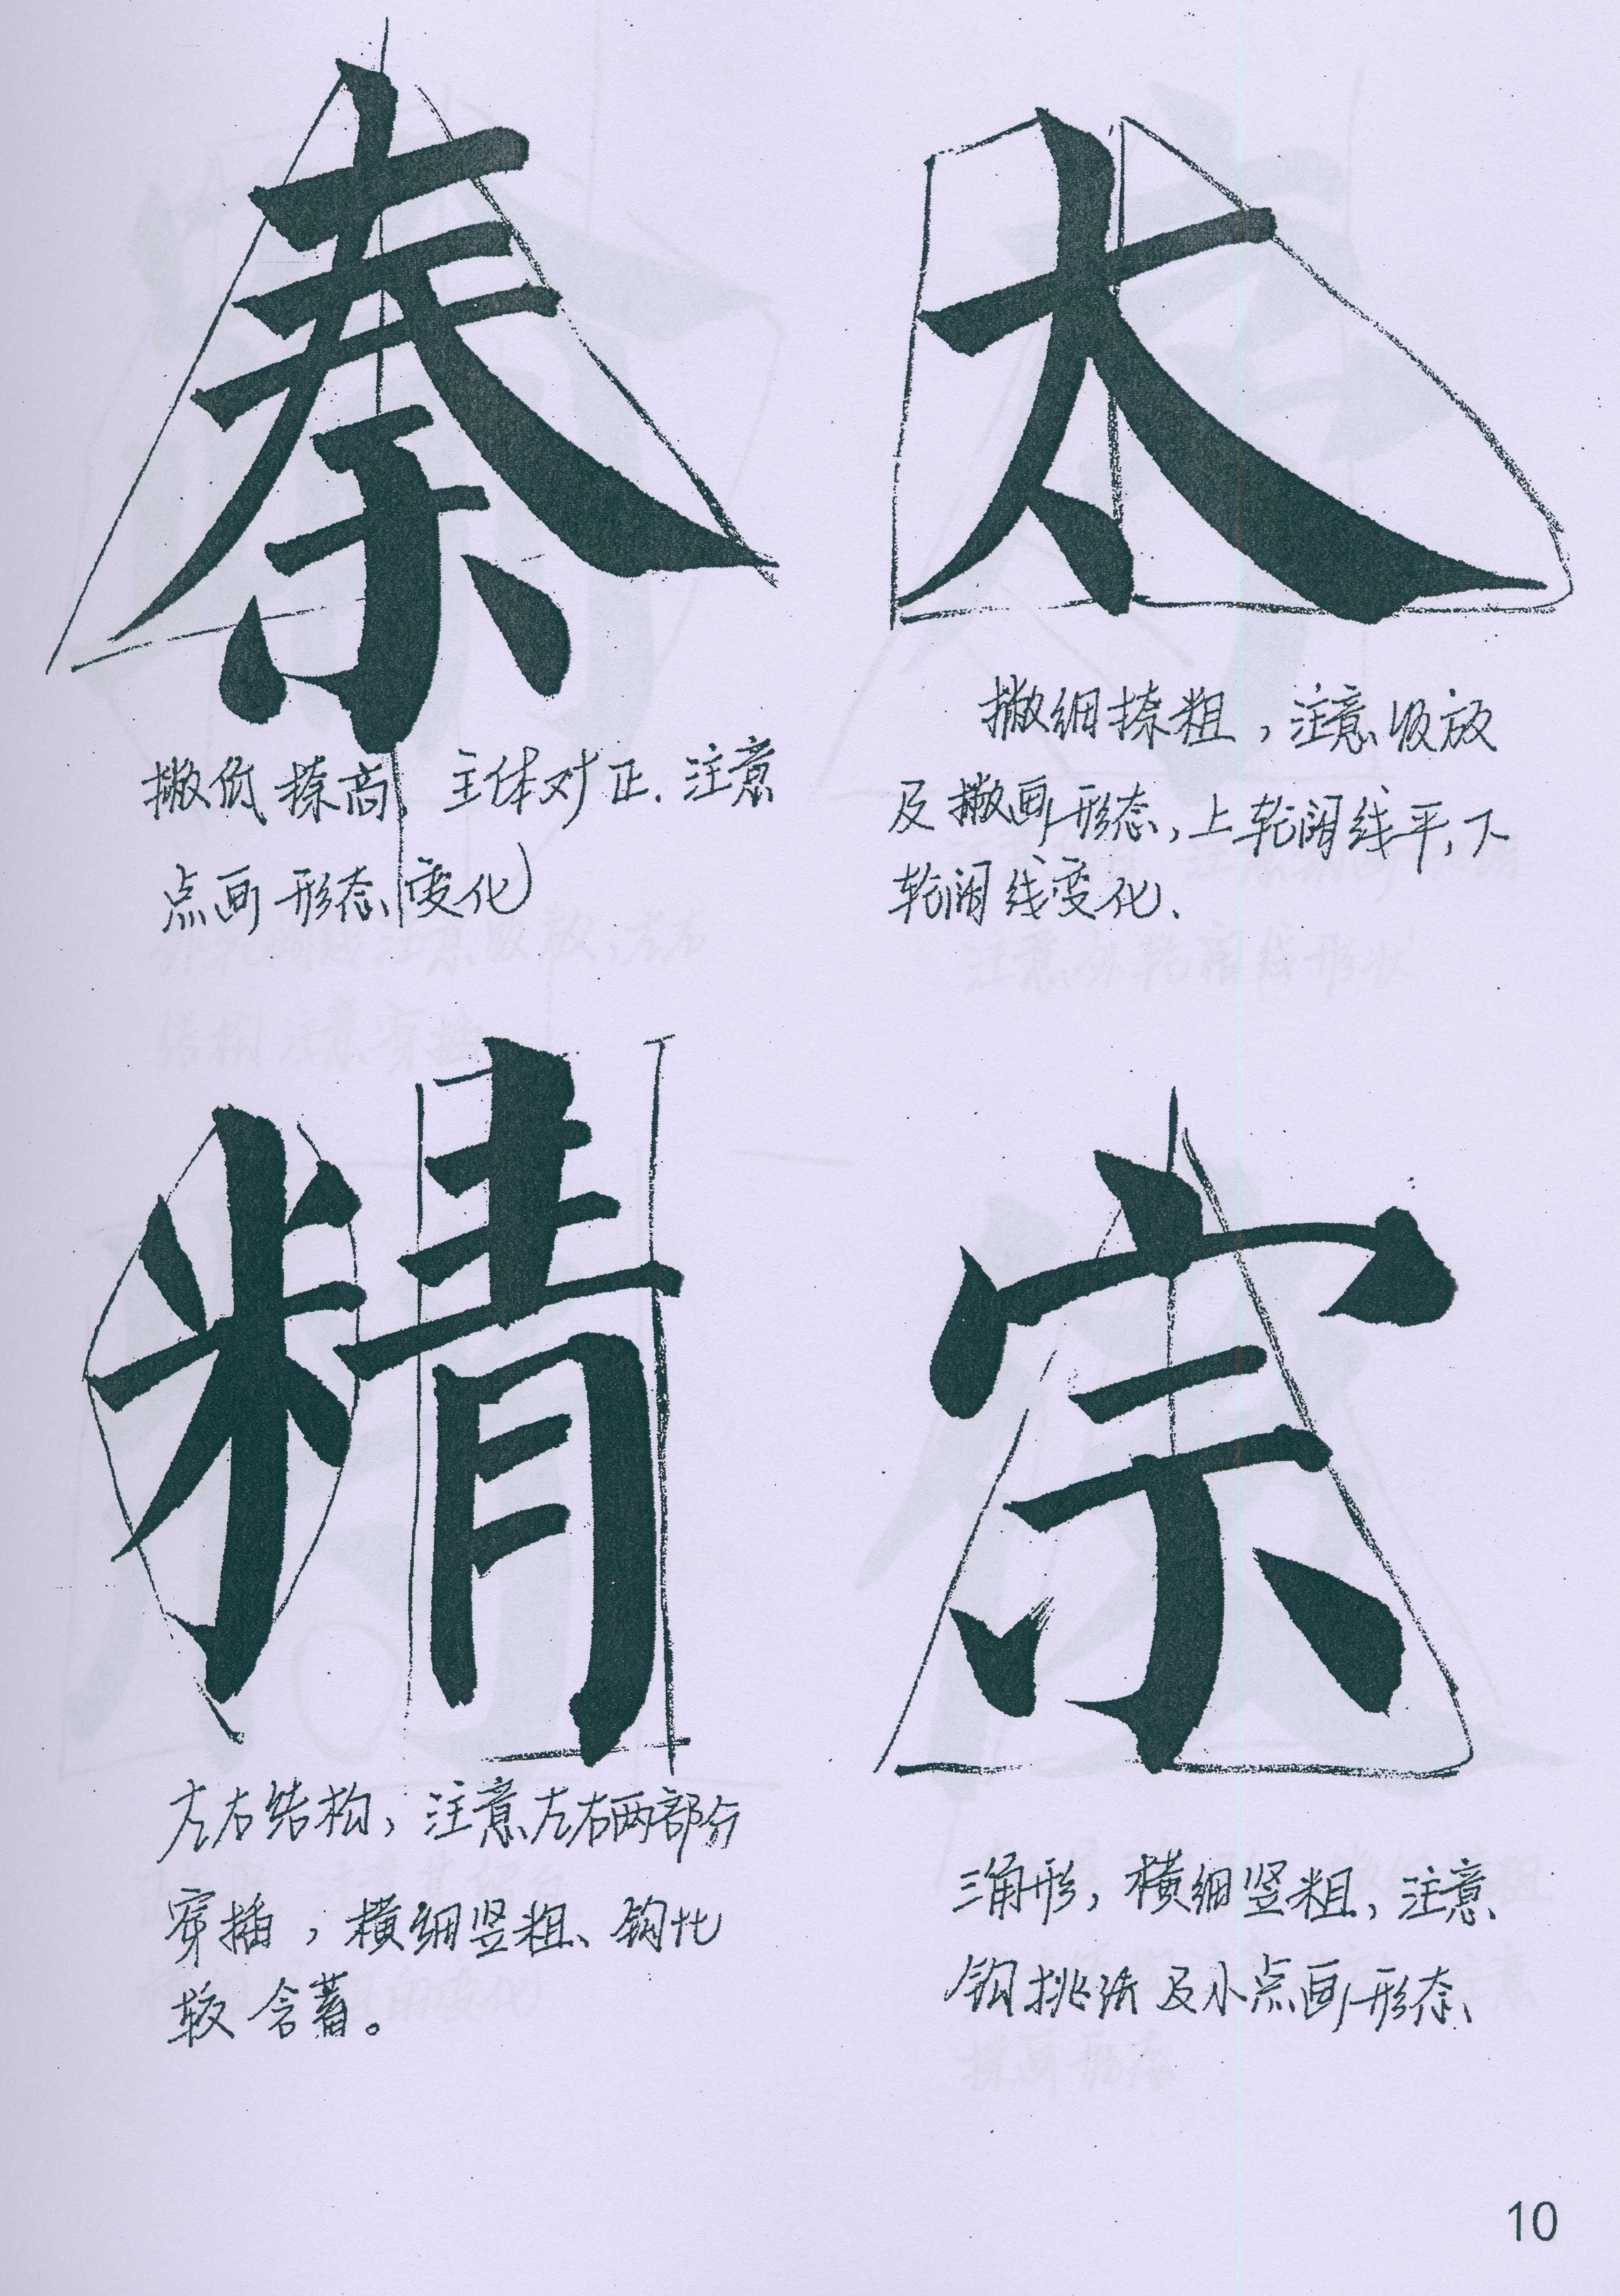 秦
撇低捺高，主体对正．注意
点画形态变化
太
撇细捺粗，注意收放
及撇画形态，上轮阔线平，下
轮阔线变化、
精
左右结构，注意左右两部分
穿插，横细竖粗、钩比
较含蓄。
宗
三角形，横细竖粗，注意
钩挑法及小点画形态、
10